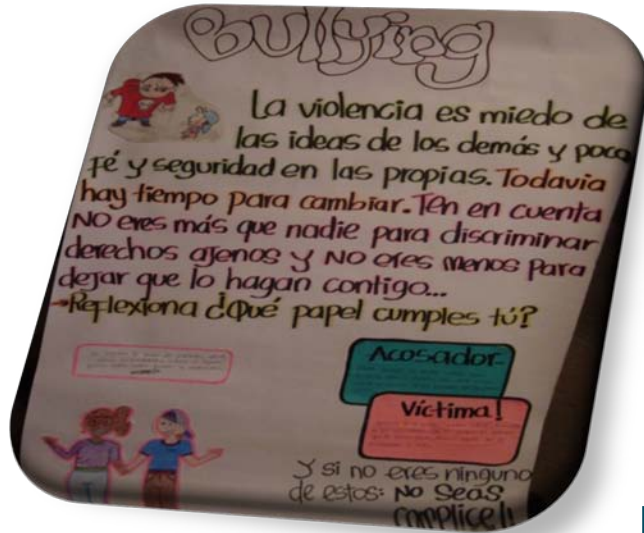 Bullying
La violencia es miedo de
las ideas de los demás y poca
Fé y seguridad en las propias. Todavia
hay tiempo para cambiar. Ten en cuenta
NO eres más que nadie para discriminar
derechos ajenos y NO eres menos para
dejar que lo hagan contigo...
-Reflexiona ¿Qué papel cumples tú?
Acosador
Víctima!
Y si no eres ninguno
de estos: NO SEAS
COMPLICE!!